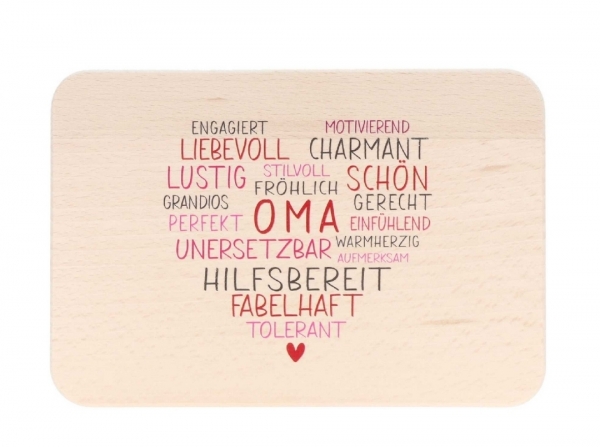 ENGAGIERT MOTIVIEREND
LIEBEVOLL CHARMANT
LUSTIG STILVOLL SCHÖN
FRÖHLICH
GRANDIOS OMA GERECHT
PERFEKT EINFÜHLEND
UNERSETZBAR WARMHERZIG
AUFMERKSAM
HILFSBEREIT
FABELHAFT
TOLERANT